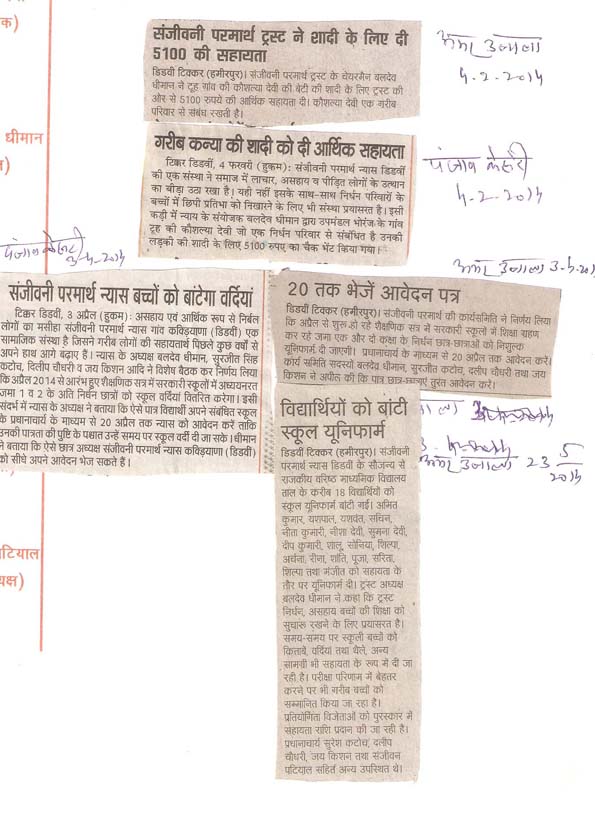 क)
संजीवनी परमार्थ ट्रस्ट ने शादी के लिए दी
5100 की सहायता
डिडवी टिक्कर (हमीरपुर)। संजीवनी परमार्थ ट्रस्ट के चेयरमैन बलदेव
धीमान ने टूह गांव की कौशल्या देवी की बेटी की शादी के लिए ट्रस्ट की
ओर से 5100 रुपये की आर्थिक सहायता दी। कौशल्या देवी एक गरीब
परिवार से संबंध रखती है।
अमर उजाला
4.2.2014
धीमान
गरीब कन्या की शादी को दी आर्थिक सहायता
टिक्कर डिडवीं, 4 फरवरी (हुकम): संजीवनी परमार्थ न्यास डिडवीं
की एक संस्था ने समाज में लाचार, असहाय व पीड़ित लोगों के उत्थान
का बीड़ा उठा रखा है। यही नहीं इसके साथ-साथ निर्धन परिवारों के
बच्चों में छिपी प्रतिभा को निखारने के लिए भी संस्था प्रयासरत है। इसी
कड़ी में न्याय के संयोजक बलदेव धीमान द्वारा उपमंडल भोरंज के गांव
टूह की कौशल्या देवी जो एक निर्धन परिवार से संबंधित है उनकी
लड़की की शादी के लिए 5100 रुपए का चैक भेंट किया गया।
पंजाब केसरी
4.2.2014
पंजाब केसरी
3-4-2014
संजीवनी परमार्थ न्यास बच्चों को बांटेगा वर्दियां
टिक्कर डिडवीं, 3 अप्रैल (हुकम): असहाय एवं आर्थिक रूप से निर्बल
लोगों का मसीहा संजीवनी परमार्थ न्यास गांव कविड़याणा (डिडवीं) एक
सामाजिक संस्था है जिसने गरीब लोगों की सहायतार्थ पिछले कुछ वर्षों से
अपने हाथ आगे बढ़ाए हैं। न्यास के अध्यक्ष बलदेव धीमान, सुरजीत सिंह
कटोच, दिलीप चौधरी व जय किशन आदि ने विशेष बैठक कर निर्णय लिया
कि अप्रैल 2014 से आरंभ हुए शैक्षणिक सत्र में सरकारी स्कूलों में अध्ययनरत
जमा 1 व 2 के अति निर्धन छात्रों को स्कूल वर्दियां वितरित करेगा। इसी
संदर्भ में न्यास के अध्यक्ष ने बताया कि ऐसे पात्र विद्यार्थी अपने संबंधित स्कूल
के प्रधानाचार्य के माध्यम से 20 अप्रैल तक न्यास को आवेदन करें ताकि
उनकी पात्रता की पुष्टि के पश्चात उन्हें समय पर स्कूल वर्दी दी जा सके। धीमान
ने बताया कि ऐसे छात्र अध्यक्ष संजीवनी परमार्थ न्यास कविड़याणा (डिडवीं)
को सीधे अपने आवेदन भेज सकते हैं।
अमर उजाला 3-4-2014
20 तक भेजें आवेदन पत्र
डिडवी टिक्कर (हमीरपुर)। संजीवनी परमार्थ की कार्यसमिति ने निर्णय लिया
कि अप्रैल से शुरू हो रहे शैक्षणिक सत्र में सरकारी स्कूलों में शिक्षा ग्रहण
कर रहे जमा एक और दो कक्षा के निर्धन छात्र-छात्राओं को निशुल्क
यूनिफार्म दी जाएगी। प्रधानाचार्य के माध्यम से 20 अप्रैल तक आवेदन करें।
कार्य समिति सदस्यों बलदेव धीमान, सुरजीत कटोच, दलीप चौधरी तथा जय
किशन ने अपील की कि पात्र छात्र-छात्राएं तुरंत आवेदन करें।
विद्यार्थियों को बांटी
स्कूल यूनिफार्म
डिडवी टिक्कर (हमीरपुर)। संजीवनी
परमार्थ न्यास डिडवी के सौजन्य से
राजकीय वरिष्ठ माध्यमिक विद्यालय
ताल के करीब 18 विद्यार्थियों को
स्कूल यूनिफार्म बांटी गई। अमित
कुमार, यशपाल, यशवंत, सचिन,
नीता कुमारी, नीशा देवी, सुमना देवी,
दीप कुमारी, शालू, सोनिया, शिल्पा,
अर्चना, रीना, शांति, पूजा, सरिता,
शिल्पा तथा मंजीत को सहायता के
तौर पर यूनिफार्म दी। ट्रस्ट अध्यक्ष
बलदेव धीमान ने कहा कि ट्रस्ट
निर्धन, असहाय बच्चों की शिक्षा को
सुचारू रखने के लिए प्रयासरत है।
समय-समय पर स्कूली बच्चों को
किताबें, वर्दियां तथा थैले, अन्य
सामग्री भी सहायता के रूप में दी जा
रही है। परीक्षा परिणाम में बेहतर
करने पर भी गरीब बच्चों को
सम्मानित किया जा रहा है।
प्रतियोगिता विजेताओं को पुरस्कार में
सहायता राशि प्रदान की जा रही है।
प्रधानाचार्य सुरेश कटोच, दलीप
चौधरी, जय किशन तथा संजीवन
पटियाल सहित अन्य उपस्थित थे।
अमर उजाला 23 5
2014
टियाल
यक्ष)